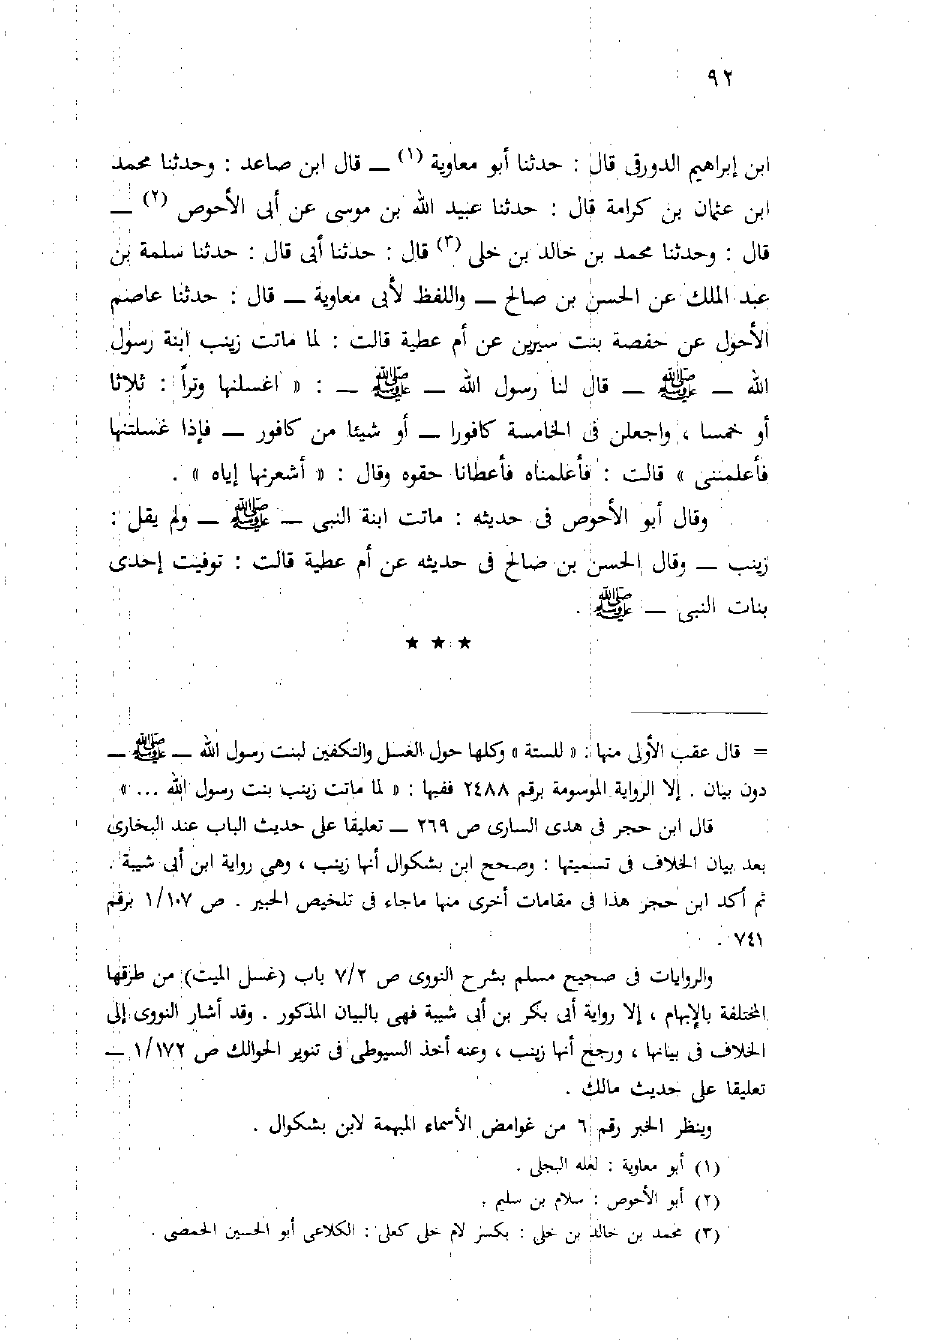 ٩٢
ابن إبراهيم الدورقى قال : حدثنا أبو معاوية (١) ــ قال ابن صاعد : وحدثنا محمد
ابن عثمان بن كرامة قال : حدثنا عبيد الله بن موسى عن أبى الأحوص (٢) ــ
قال : وحدثنا محمد بن خالد بن خلى (٣) قال : حدثنا أبى قال : حدثنا سلمة بن
عبد الملك عن الحسن بن صالح ــ واللفظ لأبى معاوية ــ قال : حدثنا عاصم
الأحول عن حفصة بنت سيرين عن أم عطية قالت : لما ماتت زينب ابنة رسول
الله ــ ﷺ ــ قال لنا رسول الله ــ ﷺ ــ : « اغسلنها وتراً : ثلاثا
أو خمسا ، واجعلن فى الخامسة كافورا ــ أو شيئا من كافور ــ فإذا غسلتنها
فأعلمننى » قالت : فأعلمناه فأعطانا حقوه وقال : « أشعرنها إياه » .
وقال أبو الأحوص فى حديثه : ماتت ابنة النبى ــ ﷺ ــ ولم يقل :
زينب ــ وقال الحسن بن صالح فى حديثه عن أم عطية قالت : توفيت إحدى
بنات النبى ــ ﷺ .
★ ★ ★
= قال عقب الأولى منها : « للستة » وكلها حول الغسل والتكفين لبنت رسول الله ــ ﷺ ــ
دون بيان . إلا الرواية الموسومة برقم ٢٤٨٨ ففيها : « لما ماتت زينب بنت رسول الله ... »
قال ابن حجر فى هدى السارى ص ٢٦٩ ــ تعليقا على حديث الباب عند البخارى
بعد بيان الخلاف فى تسميتها : وصحح ابن بشكوال أنها زينب ، وهى رواية ابن أبى شيبة .
ثم أكد ابن حجر هذا فى مقامات أخرى منها ماجاء فى تلخيص الحبير . ص ١/١٠٧ برقم
٧٤١ .
والروايات فى صحيح مسلم بشرح النووى ص ٧/٢ باب (غسل الميت) من طرقها
المختلفة بالإبهام ، إلا رواية أبى بكر بن أبى شيبة فهى بالبيان المذكور . وقد أشار النووى إلى
الخلاف فى بيانها ، ورجح أنها زينب ، وعنه أخذ السيوطى فى تنوير الحوالك ص ١/١٧٢ ــ
تعليقا على حديث مالك .
وينظر الخبر رقم ٦ من غوامض الأسماء المبهمة لابن بشكوال .
(١) أبو معاوية : لعله البجلى .
(٢) أبو الأحوص : سلام بن سليم .
(٣) محمد بن خالد بن خلى : بكسر لام خلى كعلى : الكلاعى أبو الحسين الحمصى .